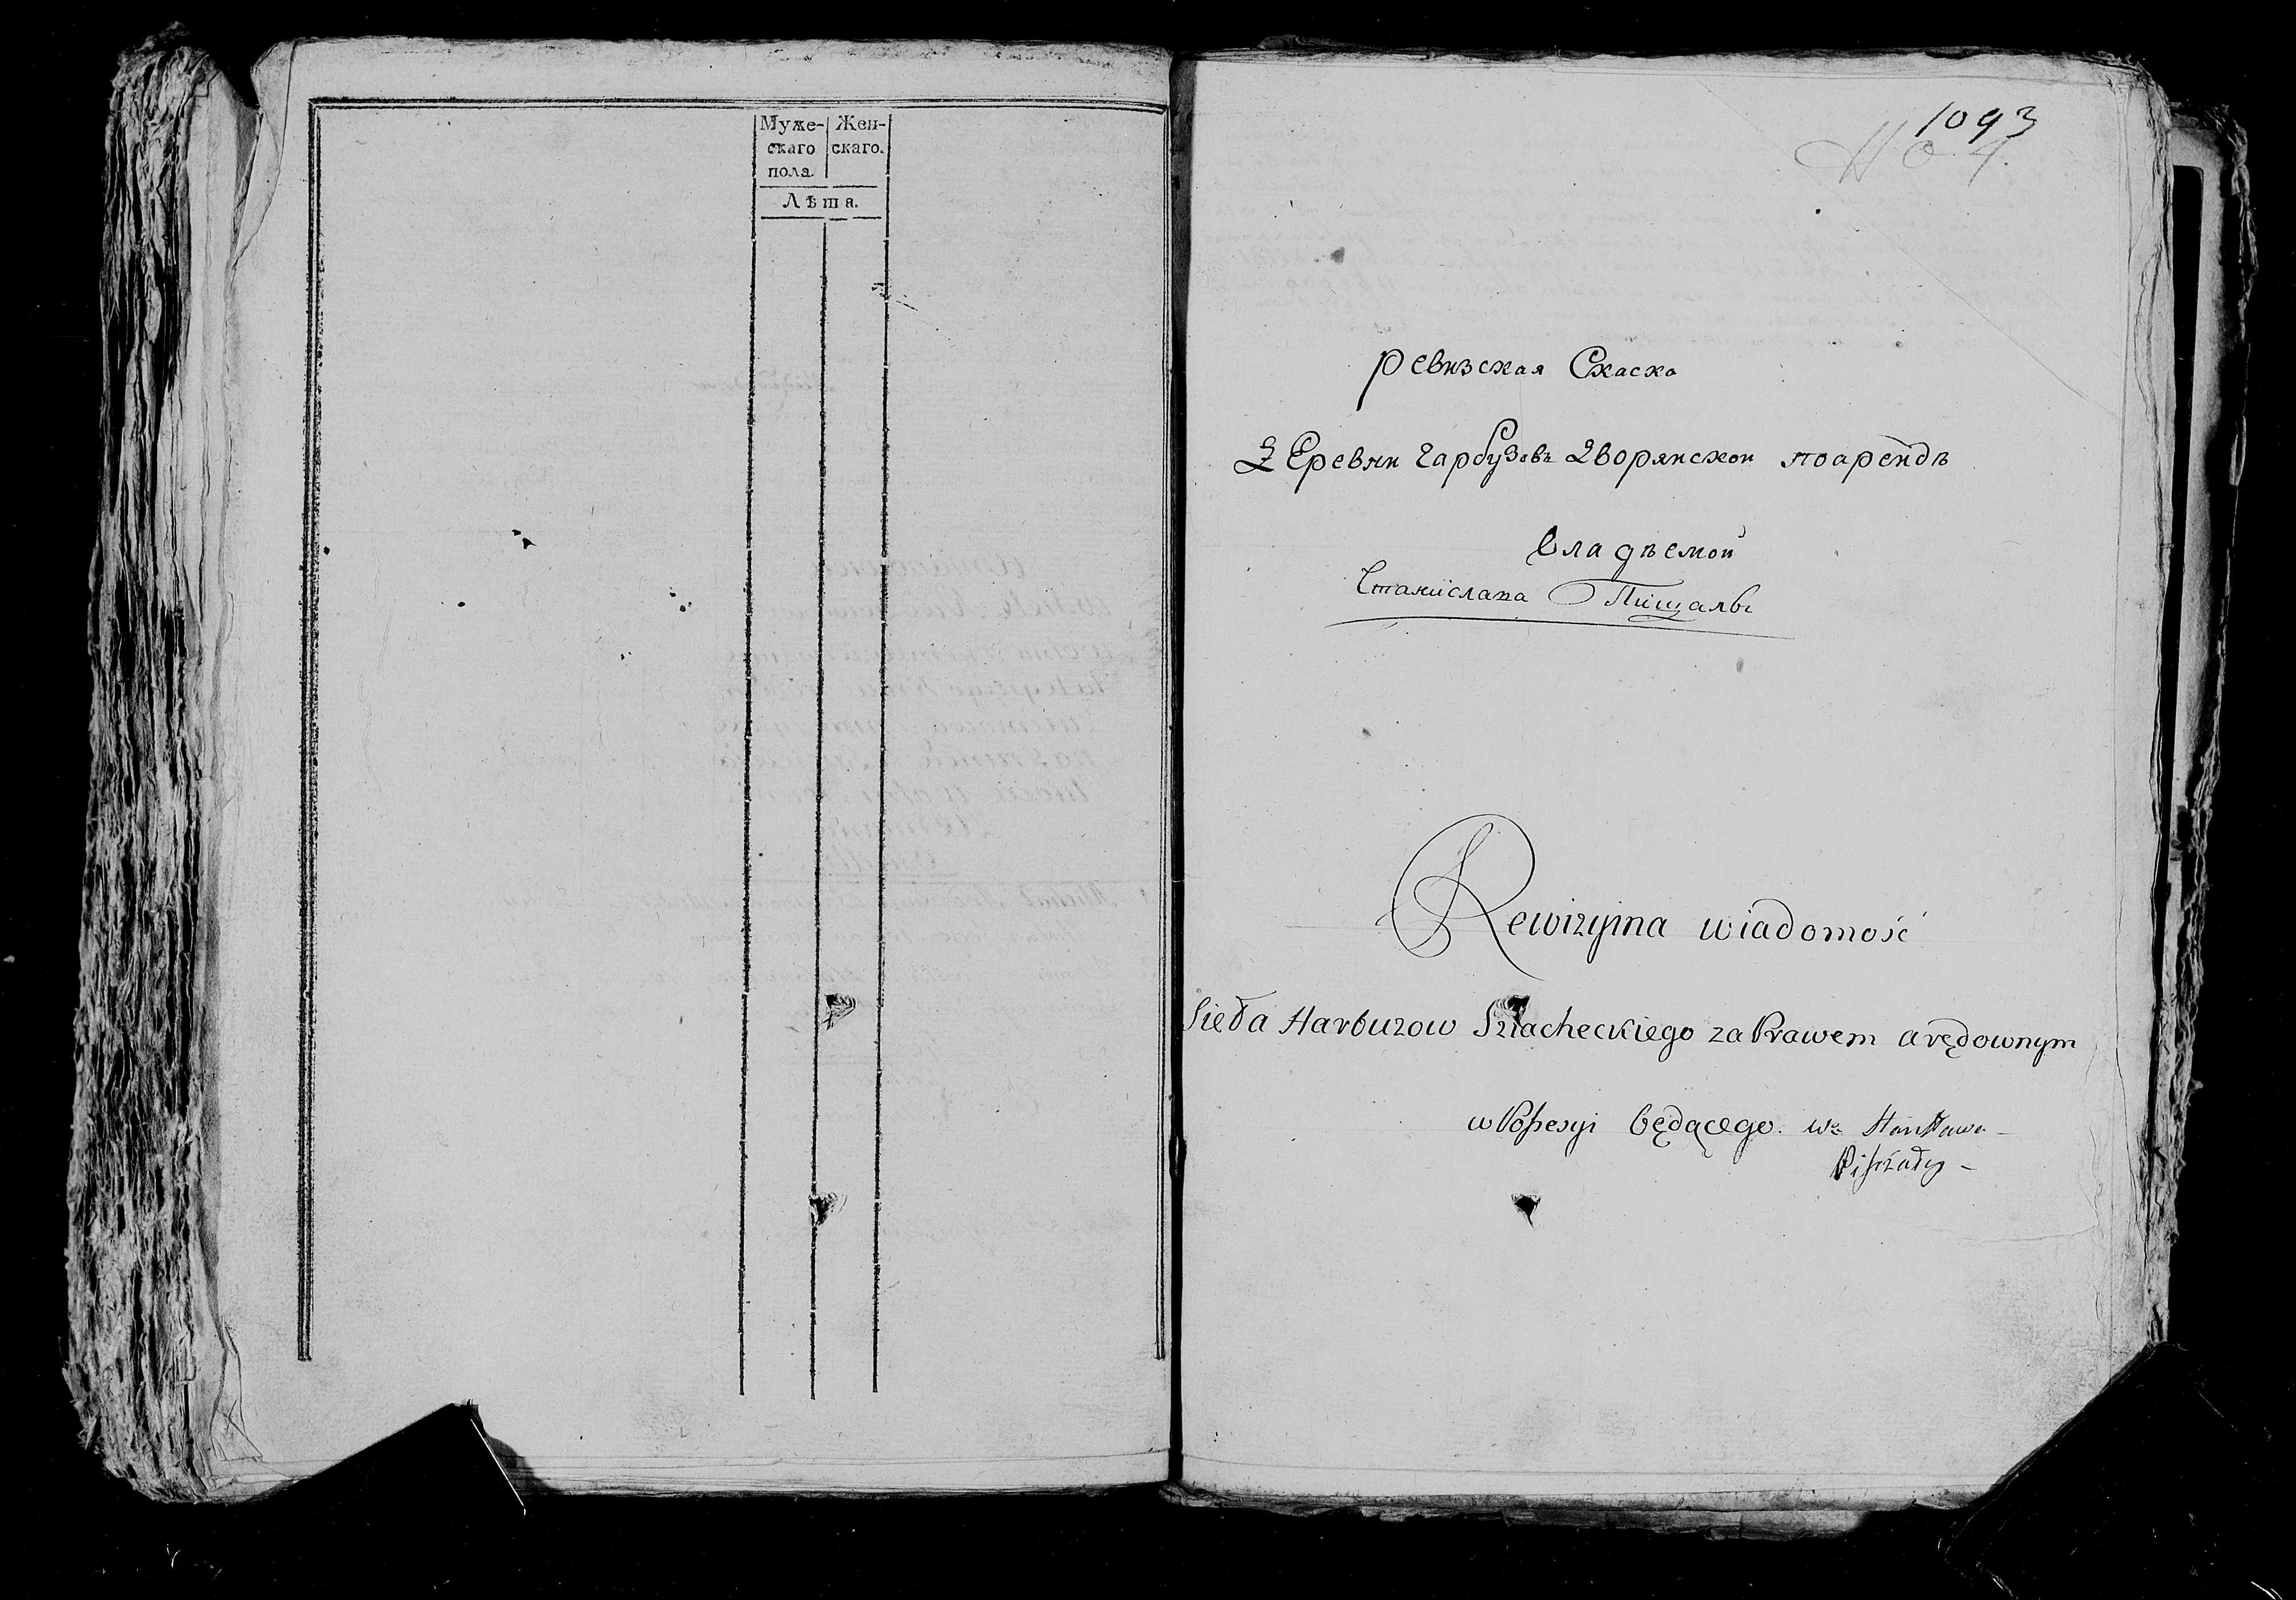 Муже- Жен-
скаго скаго.
пола.
Лѣта.
1093
No 4.
Ревизская Скаска
Деревни Гарбузовъ Дворянской поарендѣ
владѣемой
Станислава Пищалы
Rewizyina wiadomość
Sieła Harbuzow Szlacheckiego za Prawem arędownym
w Possesyi będącego. Wo Stanisława
Piszczały